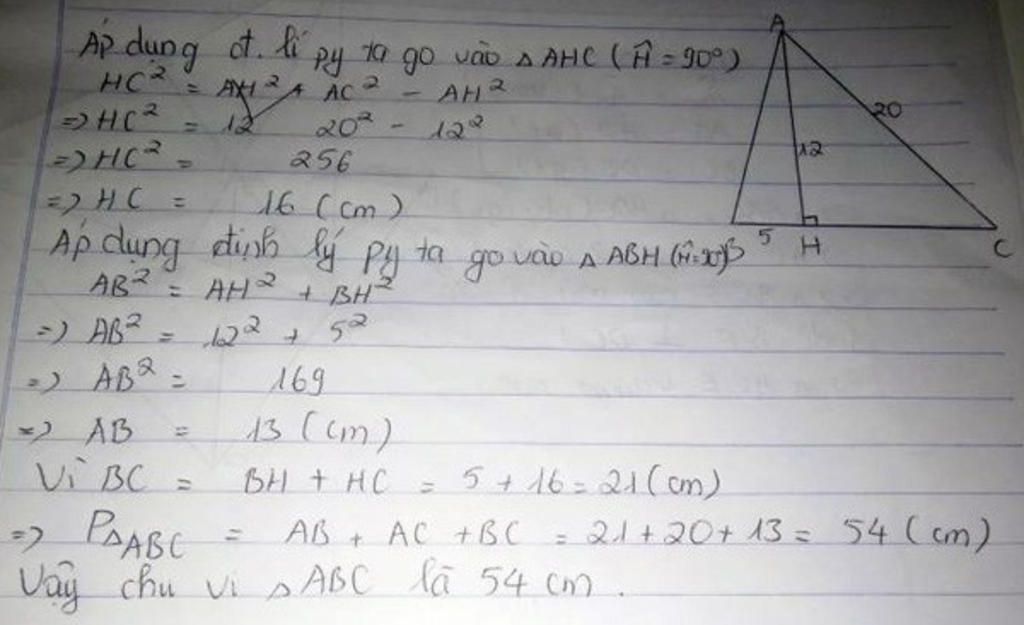 Áp dụng đ. lí py ta go vào △ AHC (Ĥ = 90°)
HC² = AH² + AC² - AH²
=> HC² = 12 20² - 12²
=> HC² = 256
=> HC = 16 (cm)
Áp dụng định lý py ta go vào △ ABH (Ĥ=90°)
AB² = AH² + BH²
=> AB² = 12² + 5²
=> AB² = 169
=> AB = 13 (cm)
Vì BC = BH + HC = 5 + 16 = 21 (cm)
=> P△ABC = AB + AC + BC = 21 + 20 + 13 = 54 (cm)
Vậy chu vi △ ABC là 54 cm.
A
20
12
B 5 H C